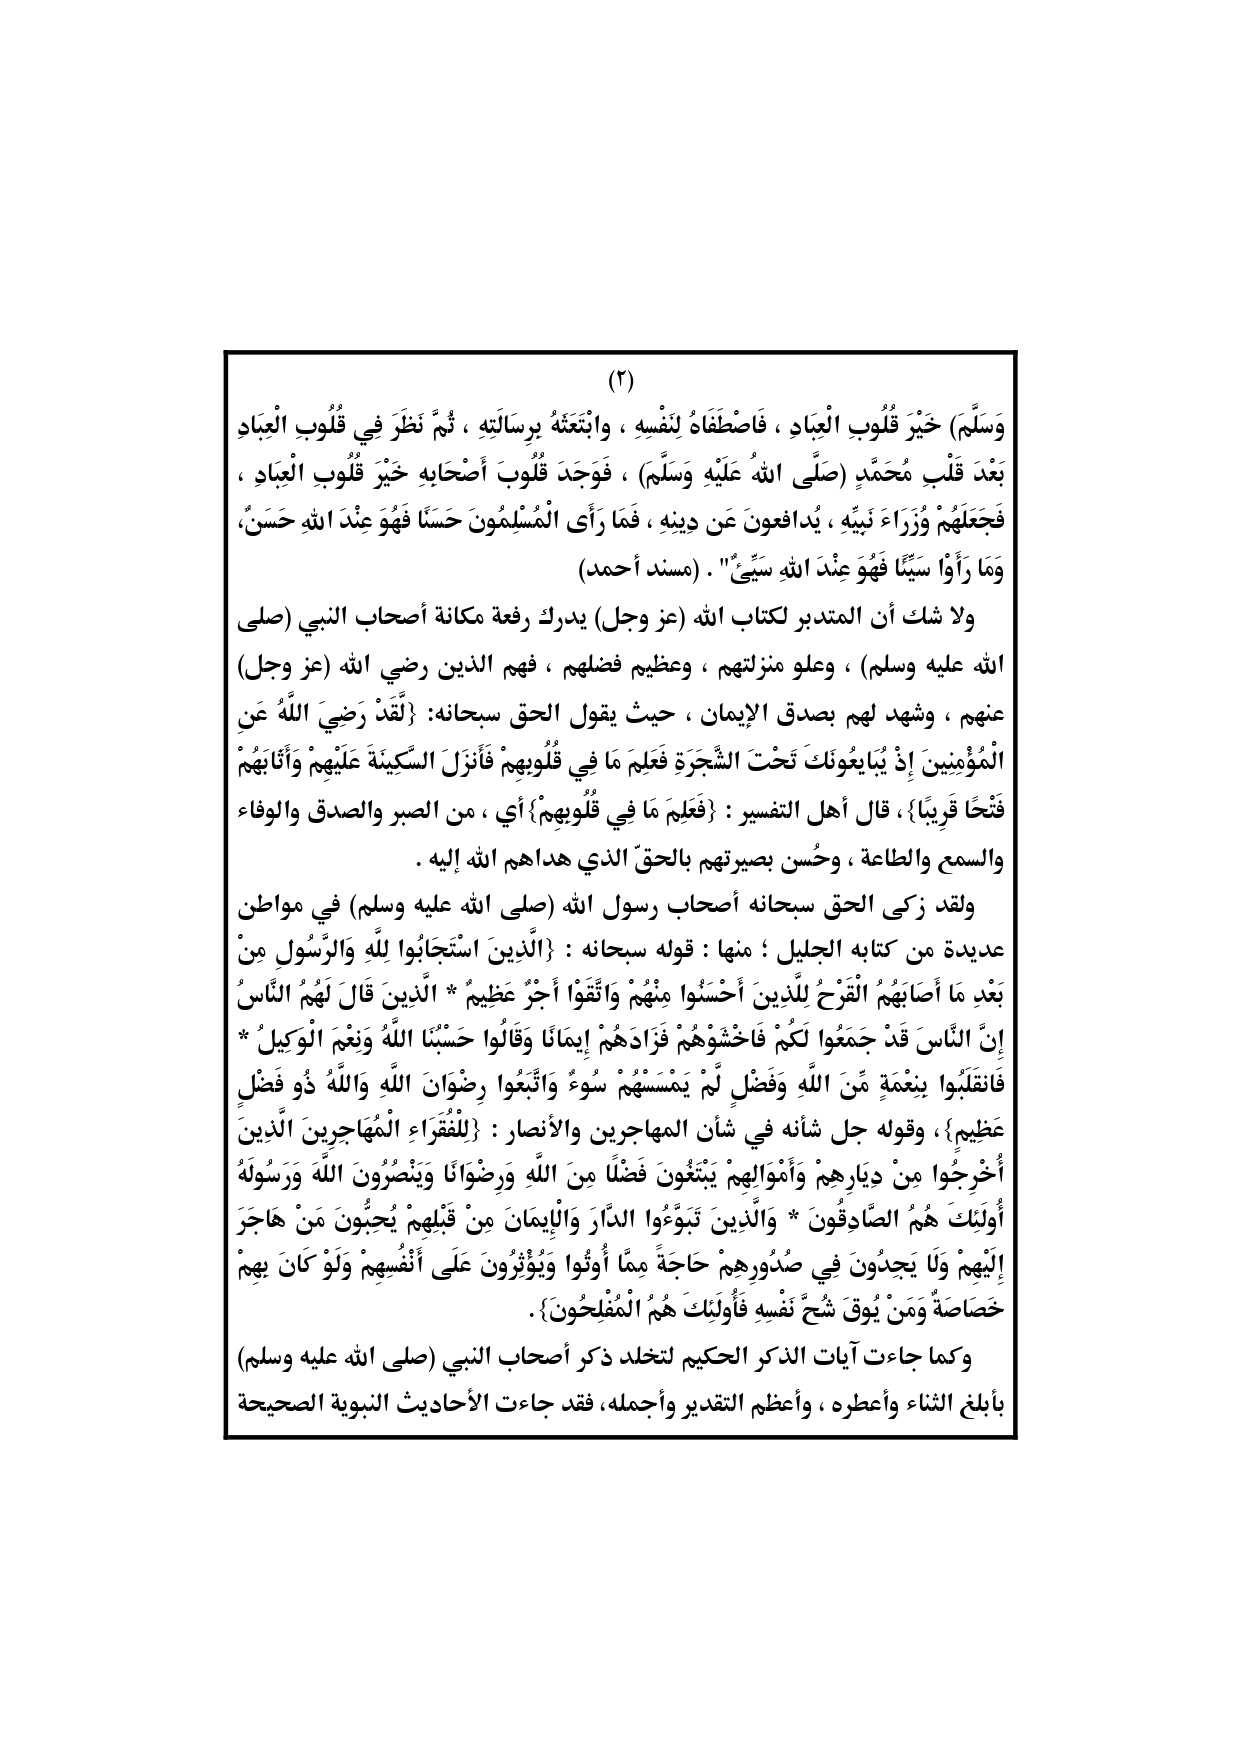 (٢)
وَسَلَّمَ) خَيْرَ قُلُوبِ الْعِبَادِ ، فَاصْطَفَاهُ لِنَفْسِهِ ، وابْتَعَثَهُ بِرِسَالَتِهِ ، ثُمَّ نَظَرَ فِي قُلُوبِ الْعِبَادِ
بَعْدَ قَلْبِ مُحَمَّدٍ (صَلَّى اللهُ عَلَيْهِ وَسَلَّمَ) ، فَوَجَدَ قُلُوبَ أَصْحَابِهِ خَيْرَ قُلُوبِ الْعِبَادِ ،
فَجَعَلَهُمْ وُزَرَاءَ نَبِيِّهِ ، يُدافعونَ عَن دِينِهِ ، فَمَا رَأَى الْمُسْلِمُونَ حَسَنًا فَهُوَ عِنْدَ اللهِ حَسَنٌ،
وَمَا رَأَوْا سَيِّئًا فَهُوَ عِنْدَ اللهِ سَيِّئٌ" . (مسند أحمد)
ولا شك أن المتدبر لكتاب الله (عز وجل) يدرك رفعة مكانة أصحاب النبي (صلى
الله عليه وسلم) ، وعلو منزلتهم ، وعظيم فضلهم ، فهم الذين رضي الله (عز وجل)
عنهم ، وشهد لهم بصدق الإيمان ، حيث يقول الحق سبحانه: {لَّقَدْ رَضِيَ اللَّهُ عَنِ
الْمُؤْمِنِينَ إِذْ يُبَايِعُونَكَ تَحْتَ الشَّجَرَةِ فَعَلِمَ مَا فِي قُلُوبِهِمْ فَأَنزَلَ السَّكِينَةَ عَلَيْهِمْ وَأَثَابَهُمْ
فَتْحًا قَرِيبًا}، قال أهل التفسير : {فَعَلِمَ مَا فِي قُلُوبِهِمْ}أي ، من الصبر والصدق والوفاء
والسمع والطاعة ، وحُسن بصيرتهم بالحقّ الذي هداهم الله إليه .
ولقد زكى الحق سبحانه أصحاب رسول الله (صلى الله عليه وسلم) في مواطن
عديدة من كتابه الجليل ؛ منها : قوله سبحانه : {الَّذِينَ اسْتَجَابُوا لِلَّهِ وَالرَّسُولِ مِنْ
بَعْدِ مَا أَصَابَهُمُ الْقَرْحُ لِلَّذِينَ أَحْسَنُوا مِنْهُمْ وَاتَّقَوْا أَجْرٌ عَظِيمٌ * الَّذِينَ قَالَ لَهُمُ النَّاسُ
إِنَّ النَّاسَ قَدْ جَمَعُوا لَكُمْ فَاخْشَوْهُمْ فَزَادَهُمْ إِيمَانًا وَقَالُوا حَسْبُنَا اللَّهُ وَنِعْمَ الْوَكِيلُ *
فَانقَلَبُوا بِنِعْمَةٍ مِّنَ اللَّهِ وَفَضْلٍ لَّمْ يَمْسَسْهُمْ سُوءٌ وَاتَّبَعُوا رِضْوَانَ اللَّهِ وَاللَّهُ ذُو فَضْلٍ
عَظِيمٍ}، وقوله جل شأنه في شأن المهاجرين والأنصار : {لِلْفُقَرَاءِ الْمُهَاجِرِينَ الَّذِينَ
أُخْرِجُوا مِنْ دِيَارِهِمْ وَأَمْوَالِهِمْ يَبْتَغُونَ فَضْلًا مِنَ اللَّهِ وَرِضْوَانًا وَيَنْصُرُونَ اللَّهَ وَرَسُولَهُ
أُولَئِكَ هُمُ الصَّادِقُونَ * وَالَّذِينَ تَبَوَّءُوا الدَّارَ وَالْإِيمَانَ مِنْ قَبْلِهِمْ يُحِبُّونَ مَنْ هَاجَرَ
إِلَيْهِمْ وَلَا يَجِدُونَ فِي صُدُورِهِمْ حَاجَةً مِمَّا أُوتُوا وَيُؤْثِرُونَ عَلَى أَنْفُسِهِمْ وَلَوْ كَانَ بِهِمْ
خَصَاصَةٌ وَمَنْ يُوقَ شُحَّ نَفْسِهِ فَأُولَئِكَ هُمُ الْمُفْلِحُونَ}.
وكما جاءت آيات الذكر الحكيم لتخلد ذكر أصحاب النبي (صلى الله عليه وسلم)
بأبلغ الثناء وأعطره ، وأعظم التقدير وأجمله، فقد جاءت الأحاديث النبوية الصحيحة